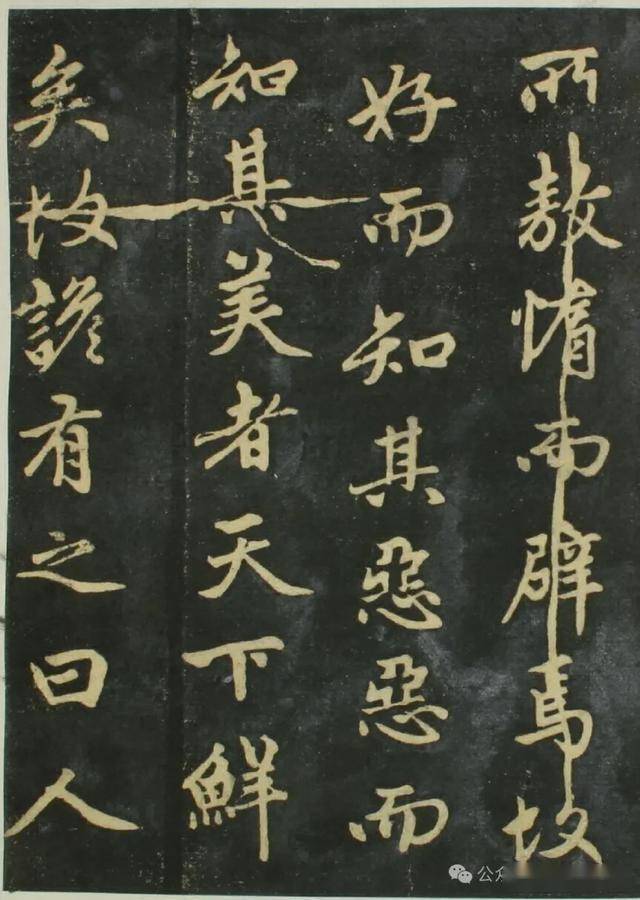 所敖惰而辟焉故
好而知其惡惡而
知其美者天下鮮
矣故諺有之曰人
公众